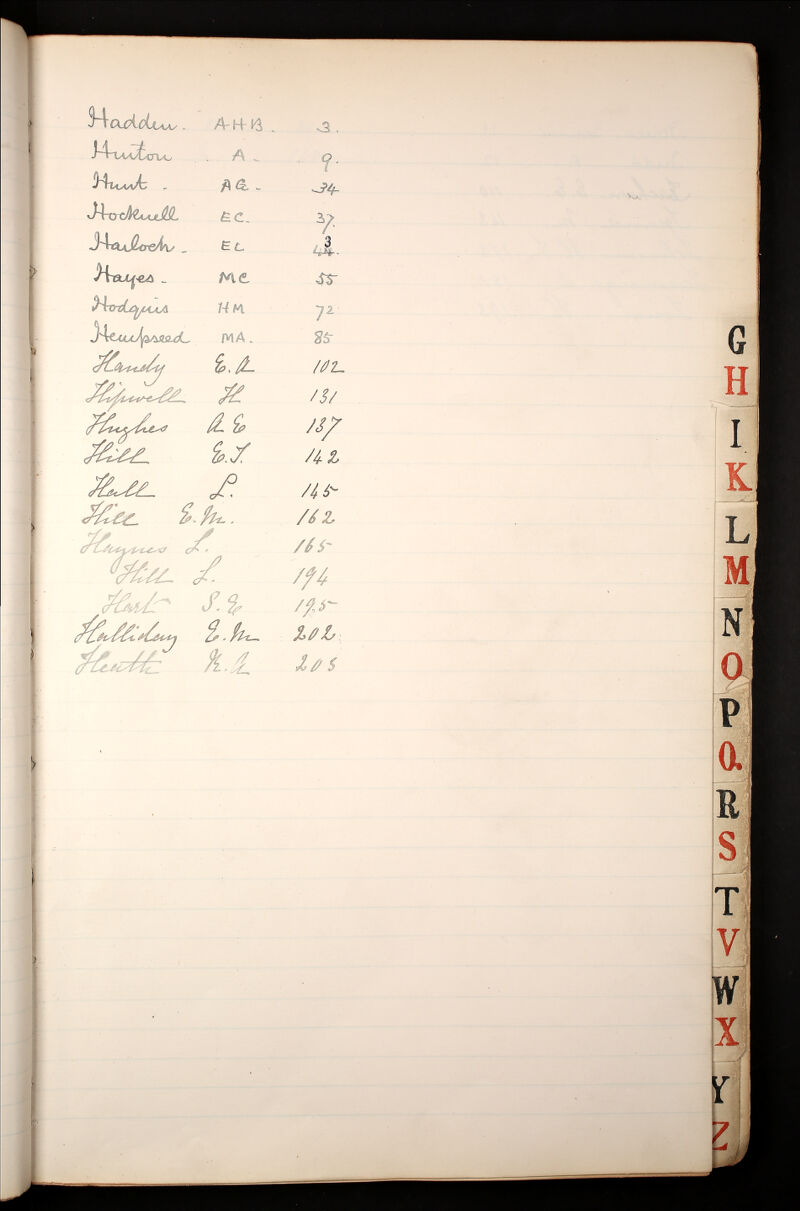 Hadden. AHB. 3.
Hinton. A. 9.
Hunt. AE. 34
Hocknell EC. 37.
EL 3
Hayes. MC 55
Hodgkiss HM 72
Hempseed MA. 85
Handy E.A 102
Hipwell H 131
Hughes A E 137
Hill E.J. 142
Hall L. 145
Hill E.M. 162
Haynes L. 165
Hill L. 194
Hart S.E 195
Halliday E.M 202
Heath K.A 205
G
H
I
K
L
M
N
O
P
Q
R
S
T
V
W
X
Y
Z